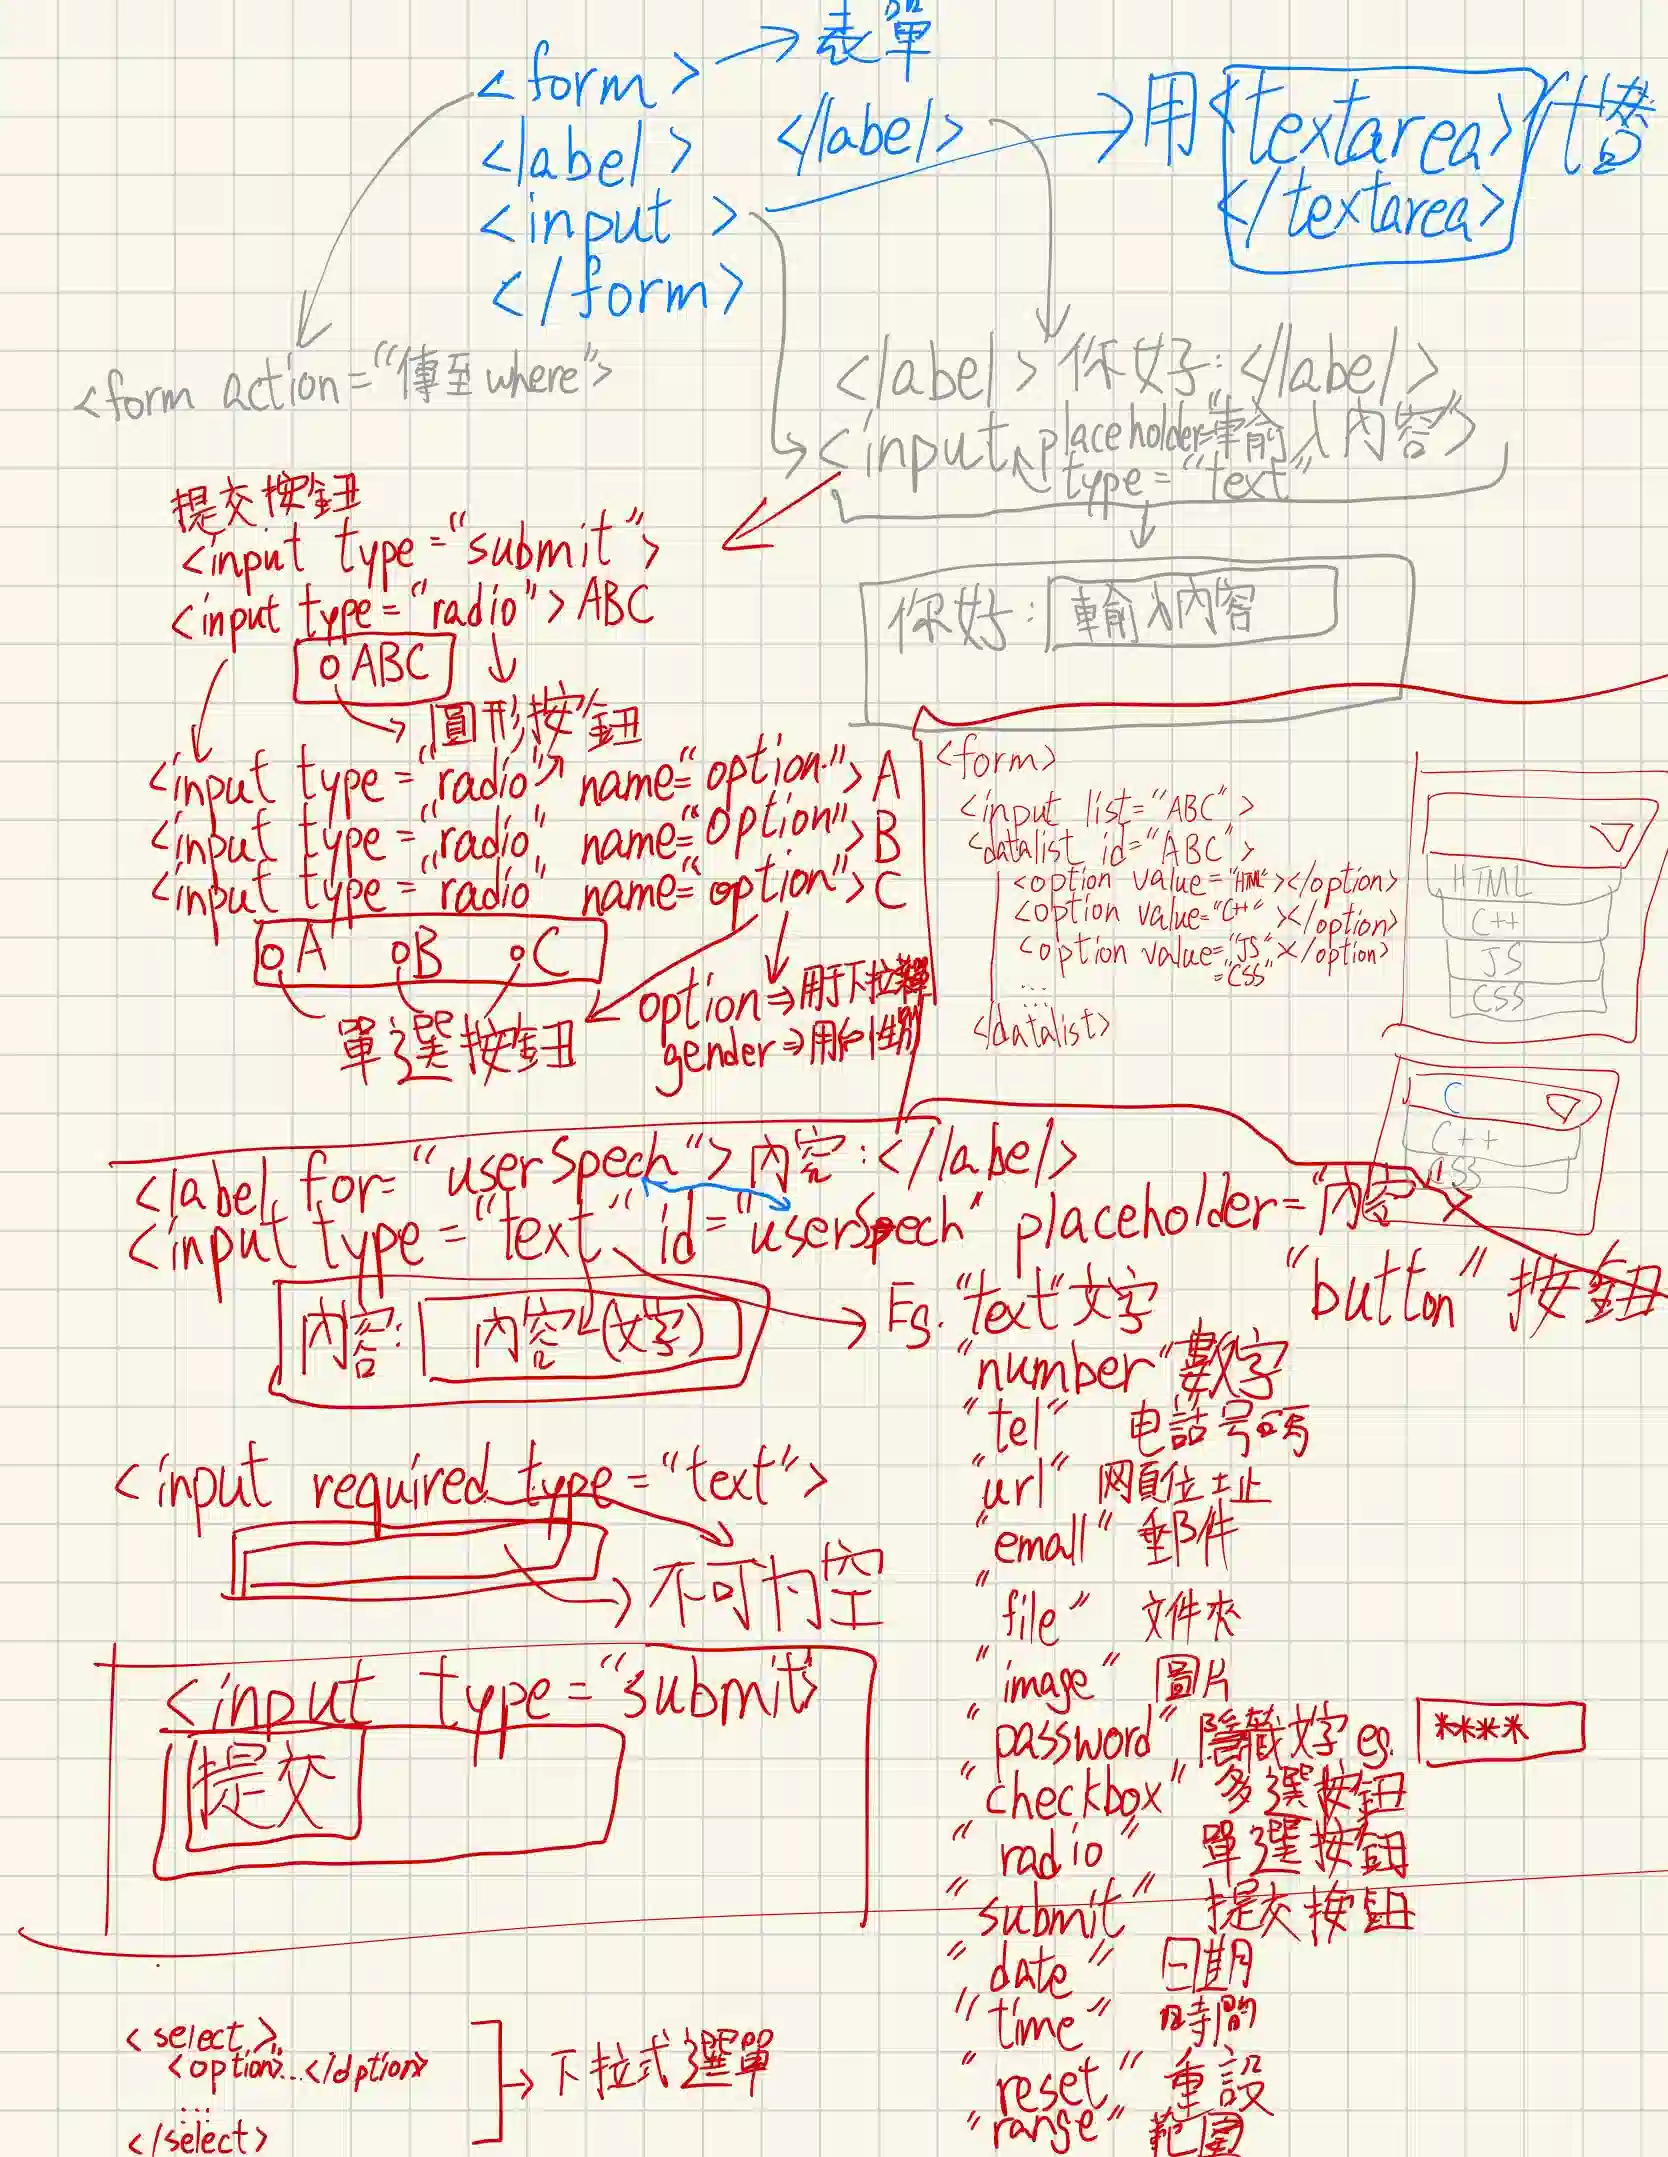 <form> → 表單
<label> </label>
<input > → 用<textarea></textarea>代替
</form>
<form action="傳至where">
</label>你好:</label>
<input placeholder="輸入內容">
type="text"
你好: 輸入內容
提交按鈕
<input type="submit">
<input type="radio">ABC
ABC
圓形按鈕
<input type="radio" name="option">A
<input type="radio" name="option">B
<input type="radio" name="option">C
A B C
單選按鈕
option⇒用于下拉
gender⇒用於性別
<form>
<input list="ABC">
<datalist id="ABC">
<option value="HTML"></option>
<option value="C++"></option>
<option value="JS"></option>
"CSS
...
...
</datalist>
HTML
C++
JS
CSS
C
C++
CSS
<label for="userSpech">內容:</label>
<input type="text" id="userSpech" placeholder="內容"
內容: 內容(文字)
Eg. "text"文字
"button" 按鈕
"number"數字
"tel" 电話号碼
"url" 网頁位址
"emall" 郵件
"file" 文件夾
"image" 圖片
"password" 隱藏文字 eg. ****
"checkbox" 多選按鈕
"radio" 單選按鈕
"submit" 提交按鈕
"date" 日期
"time" 時間
"reset" 重設
"range" 範圍
<input required type="text">
不可为空
<input type="submit
提交
<select>
<option>...</option>
...
</select>
下拉式選單